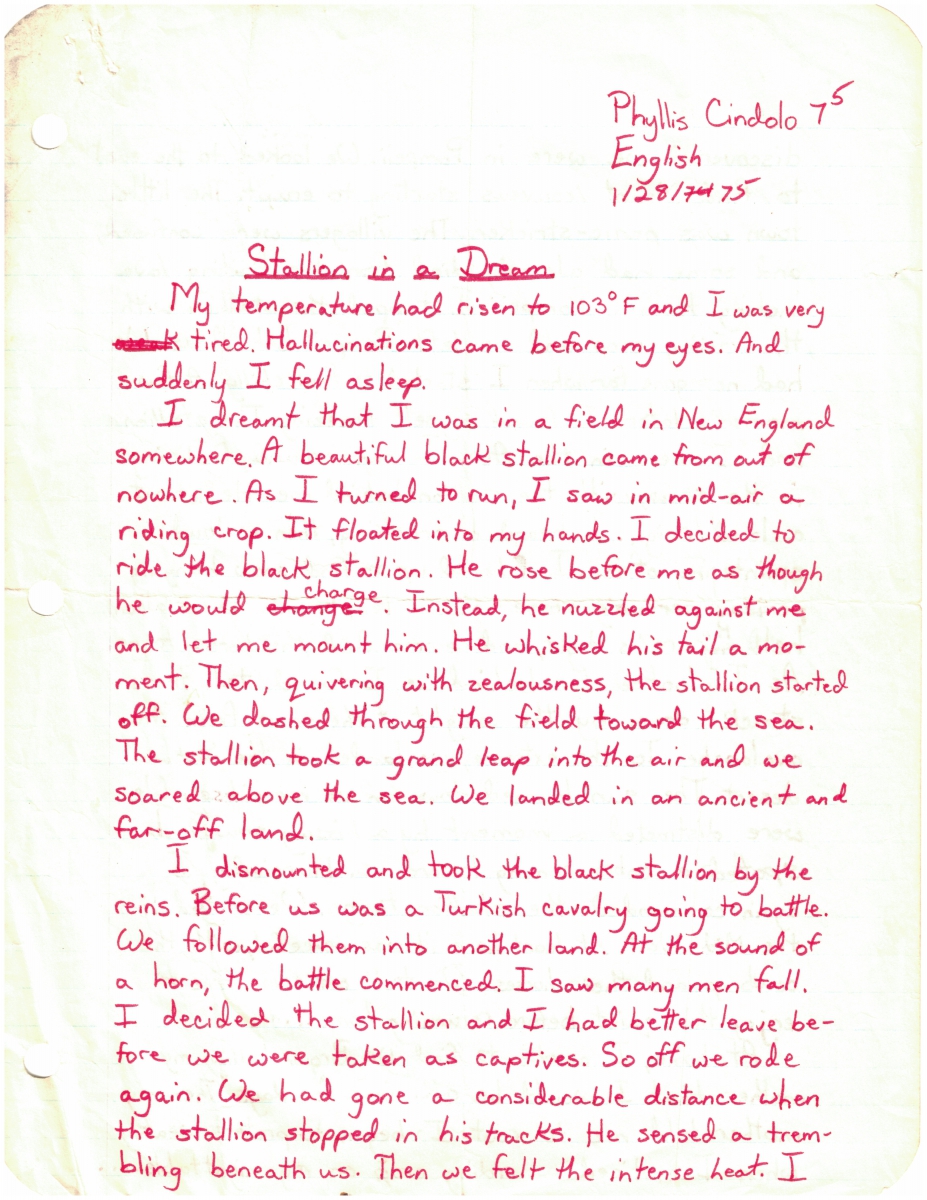 Phyllis Cindolo 7⁵
English
1/28/74 75
Stallion in a Dream
My temperature had risen to 103°F and I was very
weak tired. Hallucinations came before my eyes. And
suddenly I fell asleep.
I dreamt that I was in a field in New England
somewhere. A beautiful black stallion came from out of
nowhere. As I turned to run, I saw in mid-air a
riding crop. It floated into my hands. I decided to
ride the black stallion. He rose before me as though
he would change charge. Instead, he nuzzled against me
and let me mount him. He whisked his tail a mo-
ment. Then, quivering with zealousness, the stallion started
off. We dashed through the field toward the sea.
The stallion took a grand leap into the air and we
soared above the sea. We landed in an ancient and
far-off land.
I dismounted and took the black stallion by the
reins. Before us was a Turkish cavalry going to battle.
We followed them into another land. At the sound of
a horn, the battle commenced. I saw many men fall.
I decided the stallion and I had better leave be-
fore we were taken as captives. So off we rode
again. We had gone a considerable distance when
the stallion stopped in his tracks. He sensed a trem-
bling beneath us. Then we felt the intense heat. I